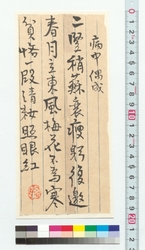 病中偶成
二豎稍蘇衰瘦軀後邀
春月立東風梅花不为寒
貧悋一段清妝照眼紅